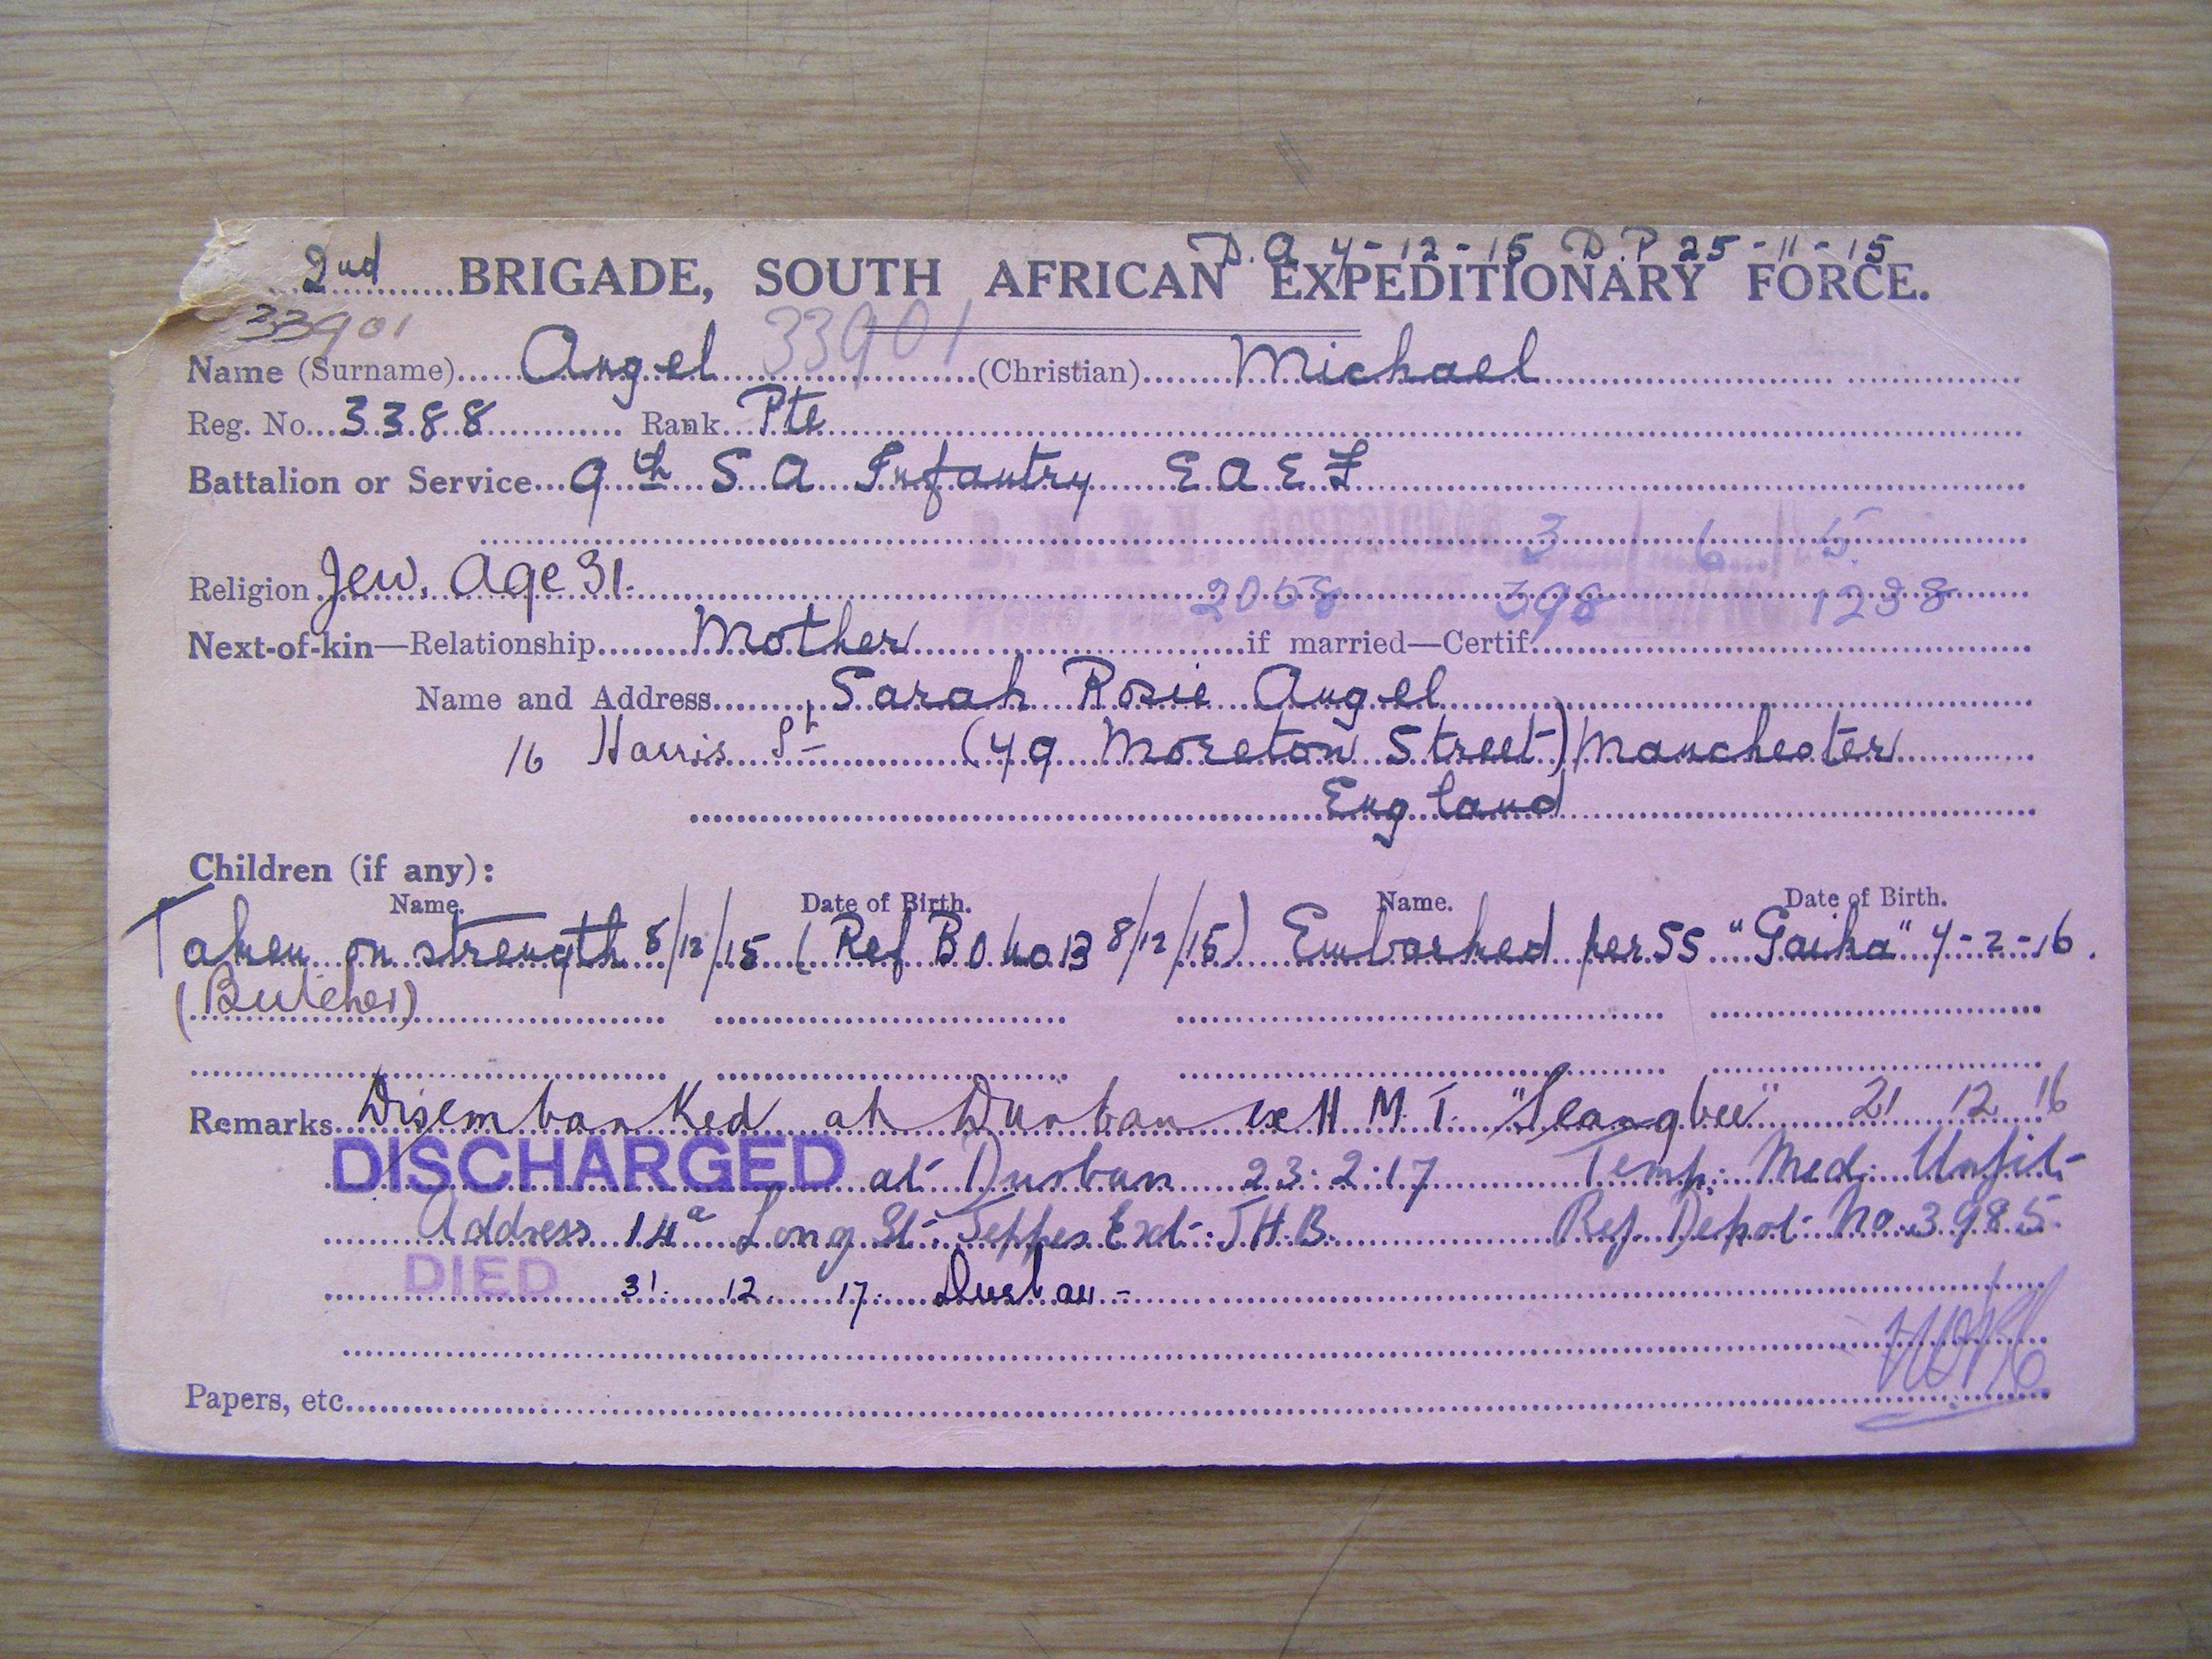 D. A 4-12-15 D. P 25-11-15
2nd BRIGADE, SOUTH AFRICAN EXPEDITIONARY FORCE.
33901 33901
Name (Surname) Angel (Christian) Michael
Reg. No. 3388 Rank Pte
Battalion or Service 9th S A Infantry E A E F
3 6 5
Religion Jew. Age 31.
2058 398 1238
Next-of-kin—Relationship Mother if married—Certif.
Name and Address Sarah Rosie Angel
16 Harris St (49 Moreton Street) Manchester
England
Children (if any):
Name. Date of Birth. Name. Date of Birth.
Taken on strength 8/12/15 (Ref B O No 13 8/12/15) Embarked per SS "Gaika" 4-2-16.
(Butcher)
Remarks Disembarked at Durban ex H. M. T. "Seangbee" 21 12 16
DISCHARGED at Durban 23.2.17 Temp. Med. Unfit
Address 14a Long St. Jeppes Ext. J.H.B. Ref. Depot No. 3985.
DIED 31. 12. 17. Durban -
Papers, etc.